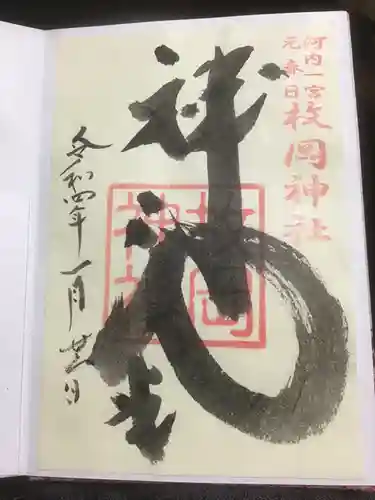 河内一宮
元春日
枚岡神社
神
枚岡
神社
令和四年一月廿日